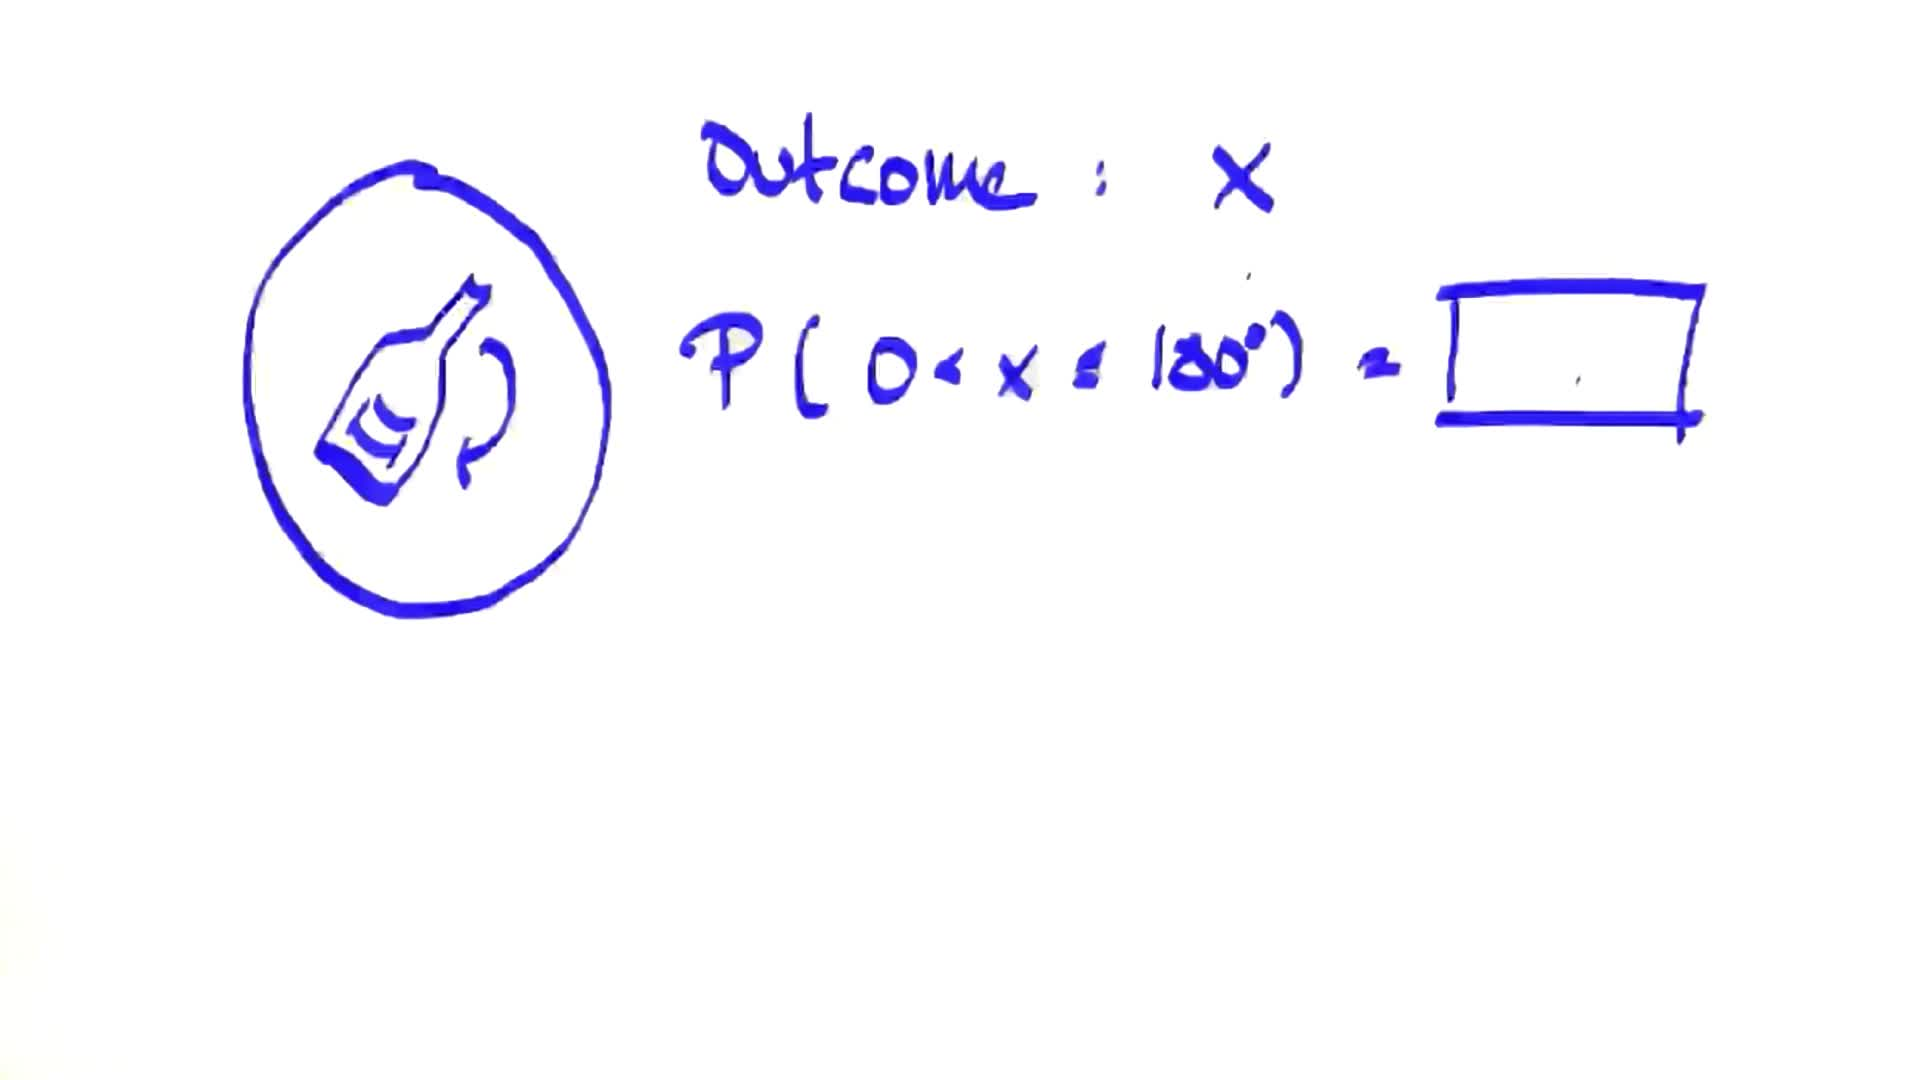 Outcome : X
P ( 0 < x ≤ 180° ) =